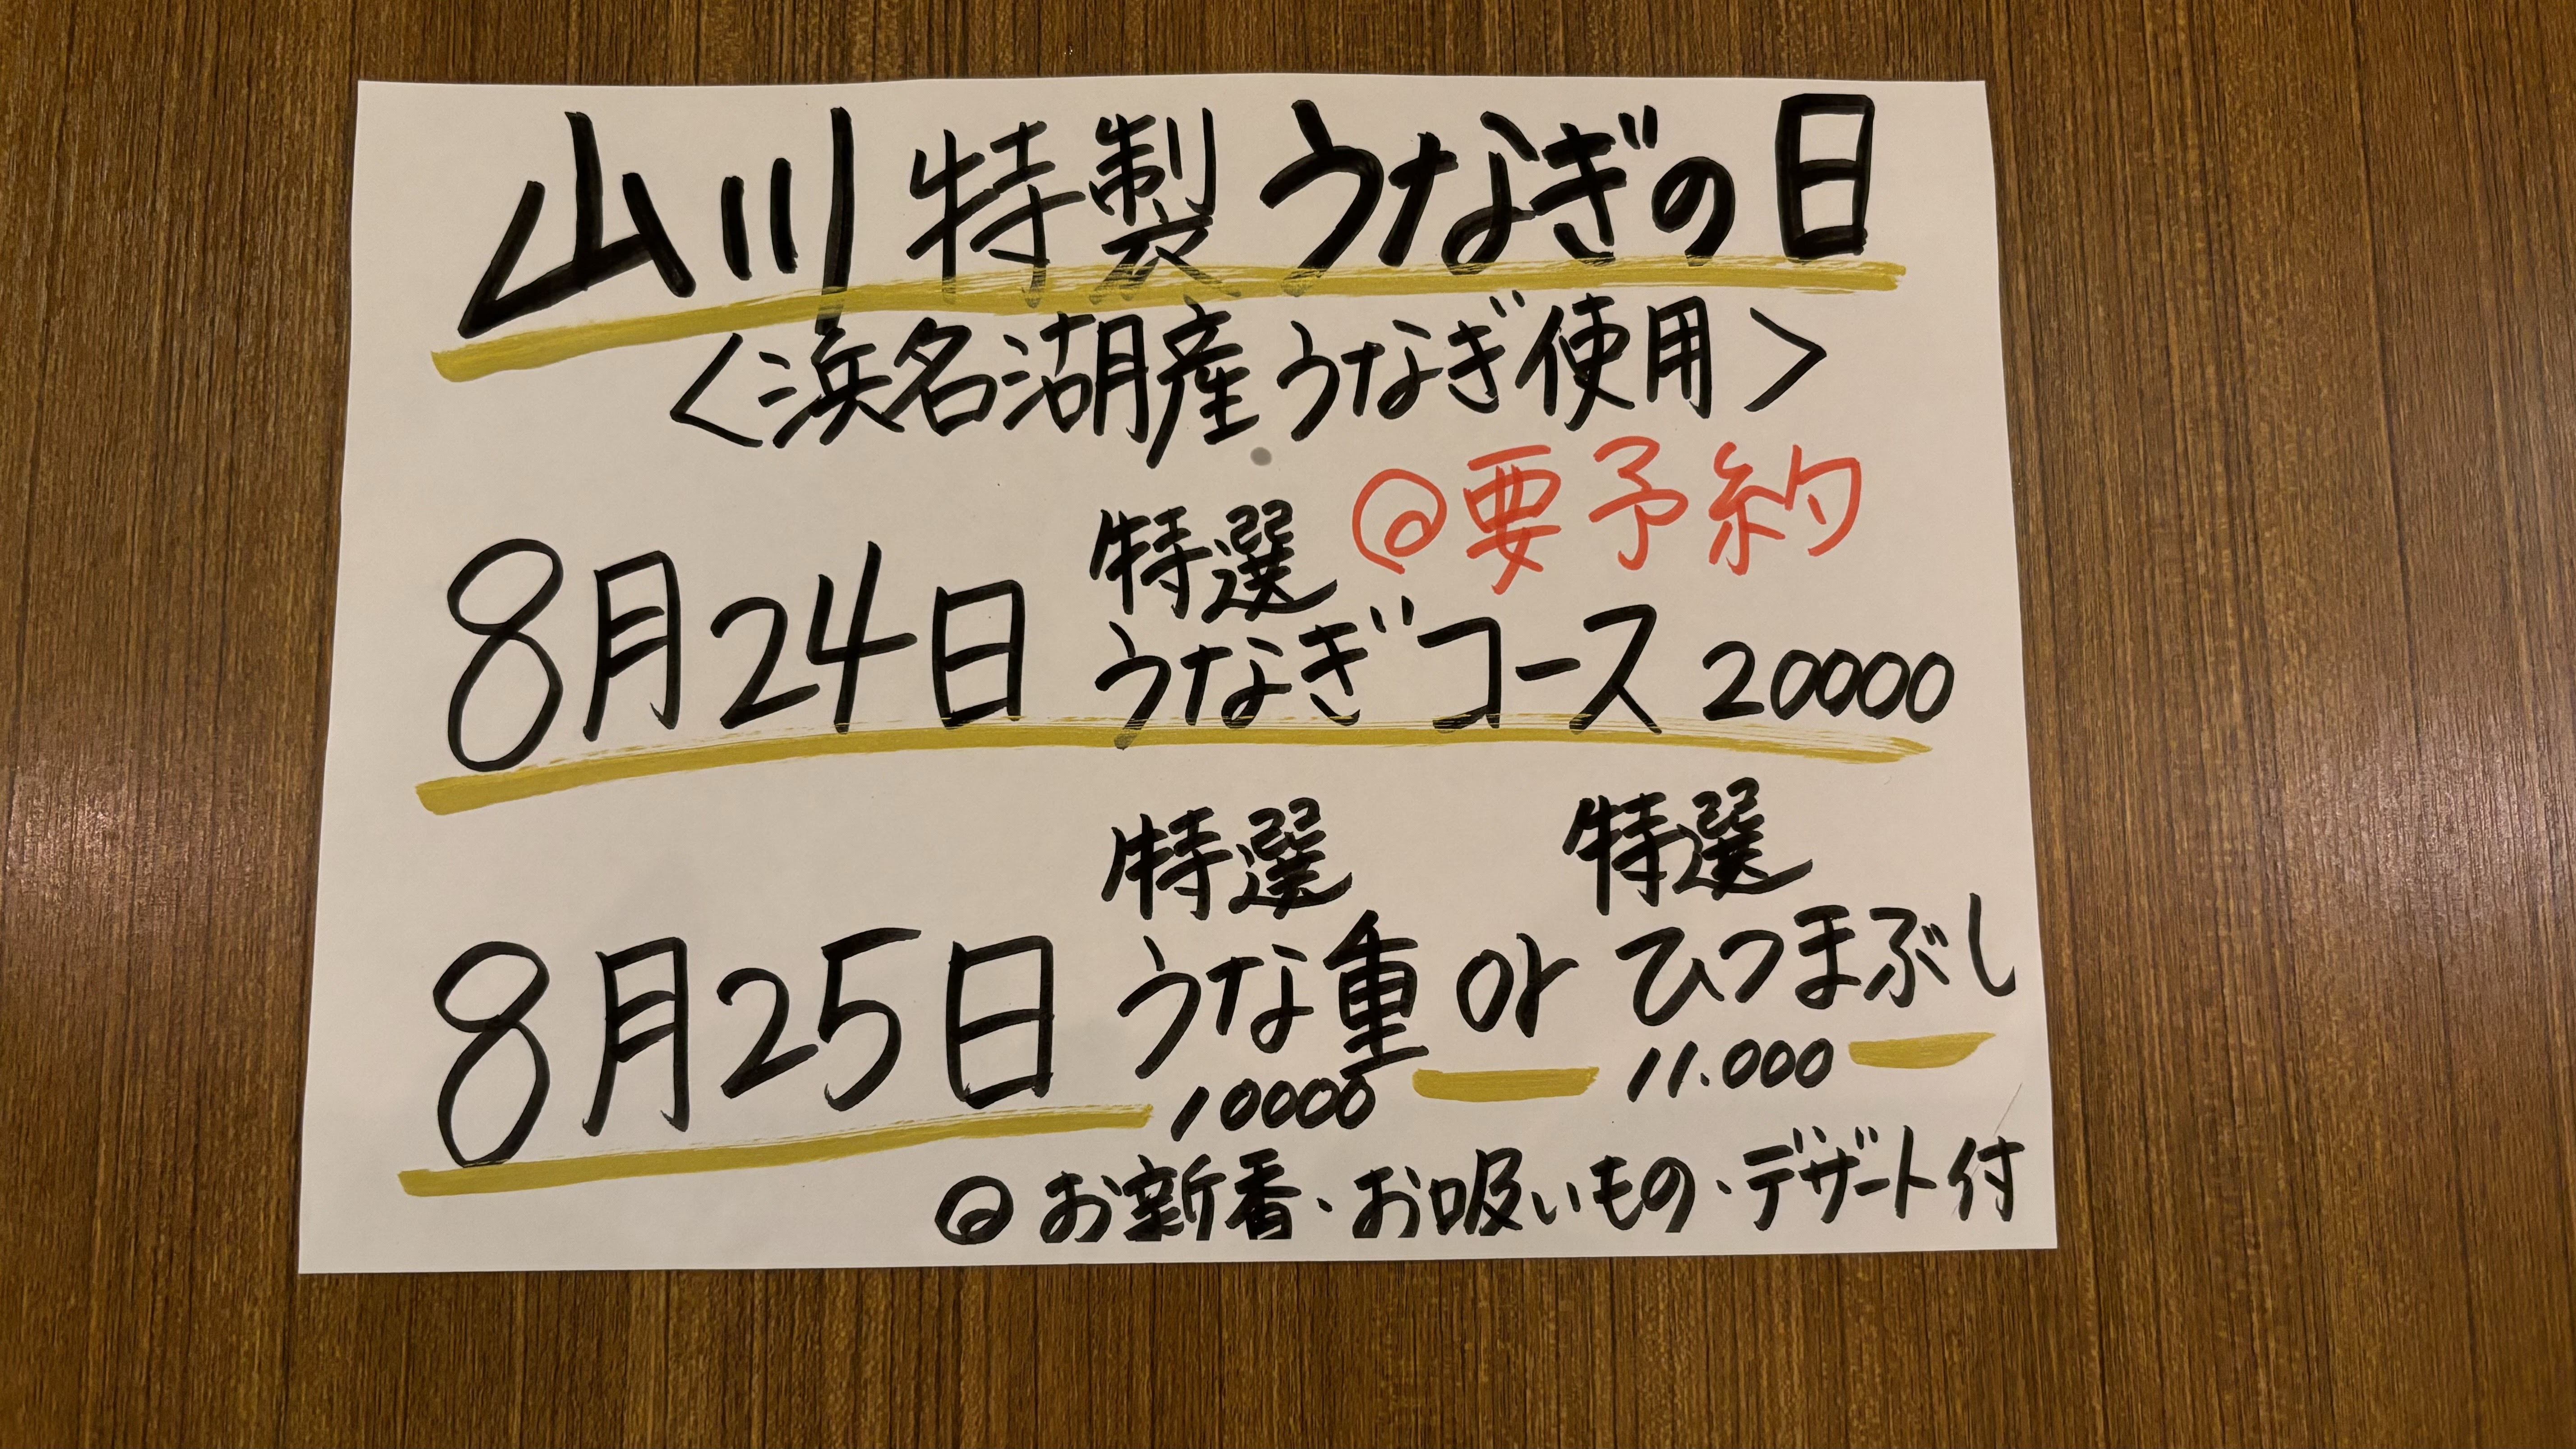 山川特製うなぎの日
<浜名湖産うなぎ使用>
@要予約
8月24日 特選うなぎコース 20000
8月25日 特選うな重 10000 or 特選ひつまぶし 11.000
@お新香・お吸いもの・デザート付